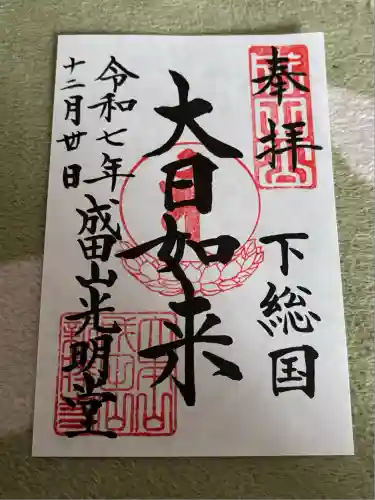 奉拝
下総国
大日如来
成田山光明堂
令和七年
十二月廿日